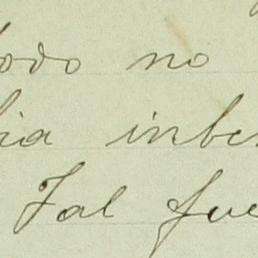 todo no
ia inbe
Tal fue